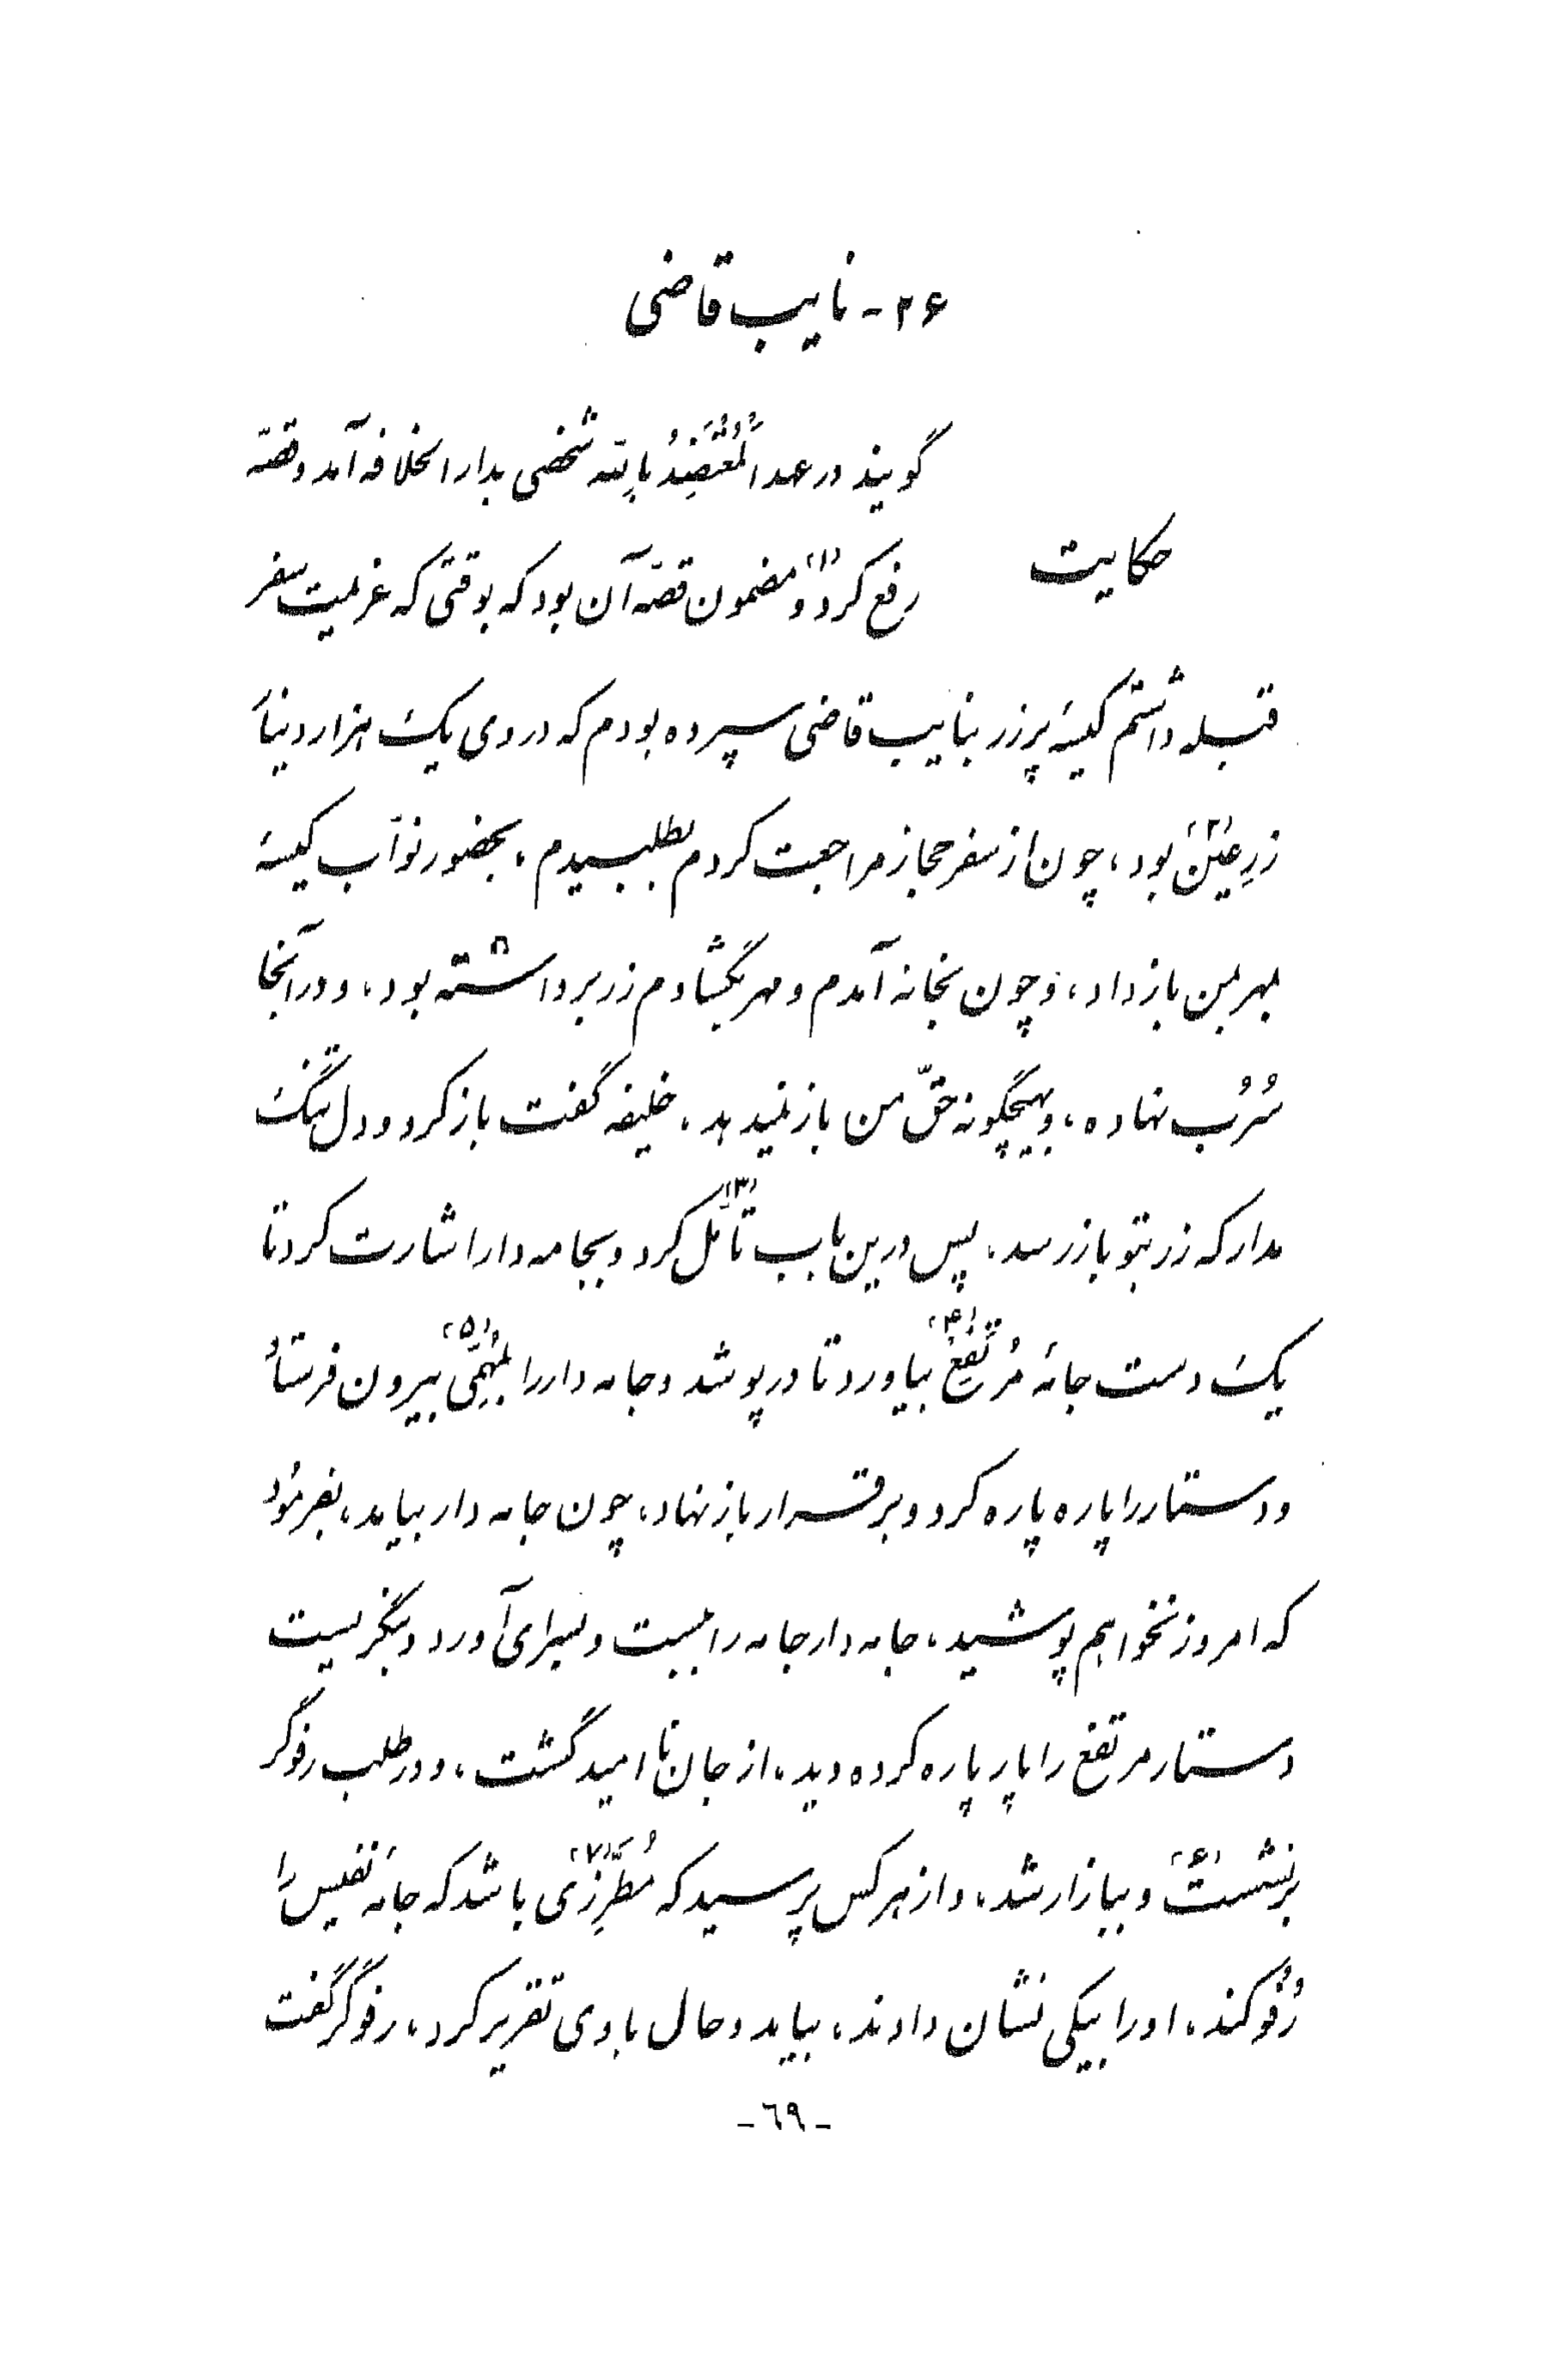 ۲۶- نایب قاضی
گویند در عهد اَلْمُعْتَضِدُ بِاللّه شخصی بدار الخلافه آمد و قصّه
حکایت
رفع کرد (۱) و مضمون قصّه آن بود که بوقتی که عزیمت سفر
قبله داشتم کیسهٔ پر زر بنایب قاضی سپرده بودم که در وی یک هزار دینار
زرِ عَیْن (۲) بود، چون از سفر حجاز مراجعت کردم بطلبیدم، بحضور نوّاب کیسهٔ
بمهر بمن باز داد، و چون بخانه آمدم و مهر بگشادم زر برداشته بود، و در آنجا
سُرُب نهاده، و بهیچگونه حقّ من باز نمیدهد، خلیفه گفت باز گرد و دل تنگ
مدار که زر بتو باز رسد، پس درین باب تأمّل (۳) کرد و بجامه دار اشارت کرد تا
یک دست جامهٔ مُرْتَفِع (۴) بیاورد تا در پوشد و جامه دار را بمُهِمّی (۵) بیرون فرستاد
و دستار را پاره پاره کرد و بر قرار باز نهاد، چون جامه دار بیامد، بفرمود
که امروز نخواهم پوشید، جامه دار جامه را ببست و بسرای آورد و بنگریست
دستار مرتفع را پار پاره کرده دید، از جان نا امید گشت، و در طلب رفوگر
برنشست (۶) و ببازار شد، و از هر کس پرسید که مُطَرِّزی (۷) باشد که جامهٔ نفیس را
رُفو کند، او را بیکی نشان دادند، بیامد و حال با وی تقریر کرد، رفوگر گفت
-٦٩-